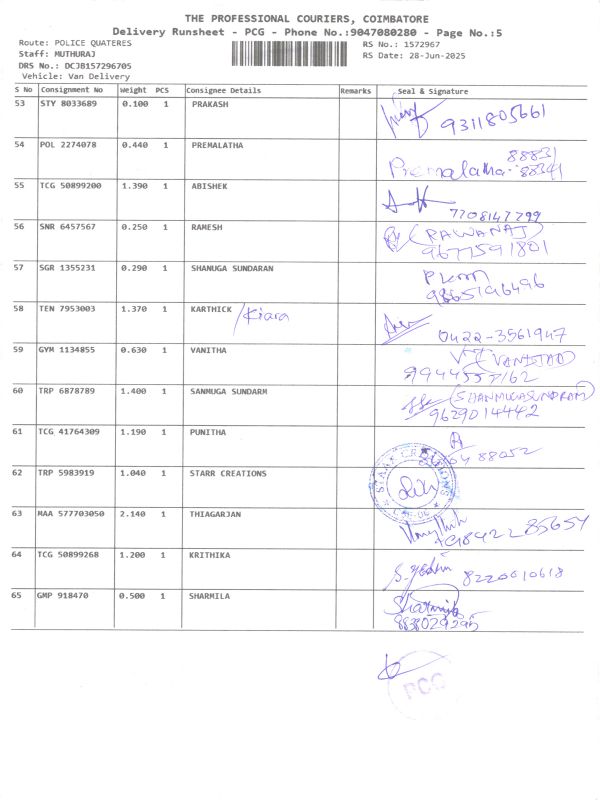 THE PROFESSIONAL COURIERS, COIMBATORE
Delivery Runsheet - PCG - Phone No.:9047080280 - Page No.:5
Route: POLICE QUATERES
Staff: MUTHURAJ
DRS No.: DCJB157296705
Vehicle: Van Delivery
RS No.: 1572967
RS Date: 28-Jun-2025
S No Consignment No Weight PCS Consignee Details Remarks Seal & Signature
53 STY 8033689 0.100 1 PRAKASH 9311805661
54 POL 2274078 0.440 1 PREMALATHA Premalatha 88831 88341
55 TCG 50899200 1.390 1 ABISHEK 7708147799
56 SNR 6457567 0.250 1 RAMESH (RAWANAJ) 9677591801
57 SGR 1355231 0.290 1 SHANUGA SUNDARAN 9865196496
58 TEN 7953003 1.370 1 KARTHICK /Kiara 0422-3561947
59 GYM 1134855 0.630 1 VANITHA 9944557162
60 TRP 6878789 1.400 1 SANMUGA SUNDARM (SHANMUGASUNDRAM) 9629014442
61 TCG 41764309 1.190 1 PUNITHA 88052
62 TRP 5983919 1.040 1 STARR CREATIONS STARR CREATIONS
63 MAA 577703050 2.140 1 THIAGARJAN +919842285654
64 TCG 50899268 1.200 1 KRITHIKA 8220010618
65 GMP 918470 0.500 1 SHARMILA Sharmila 9838029295
PCG